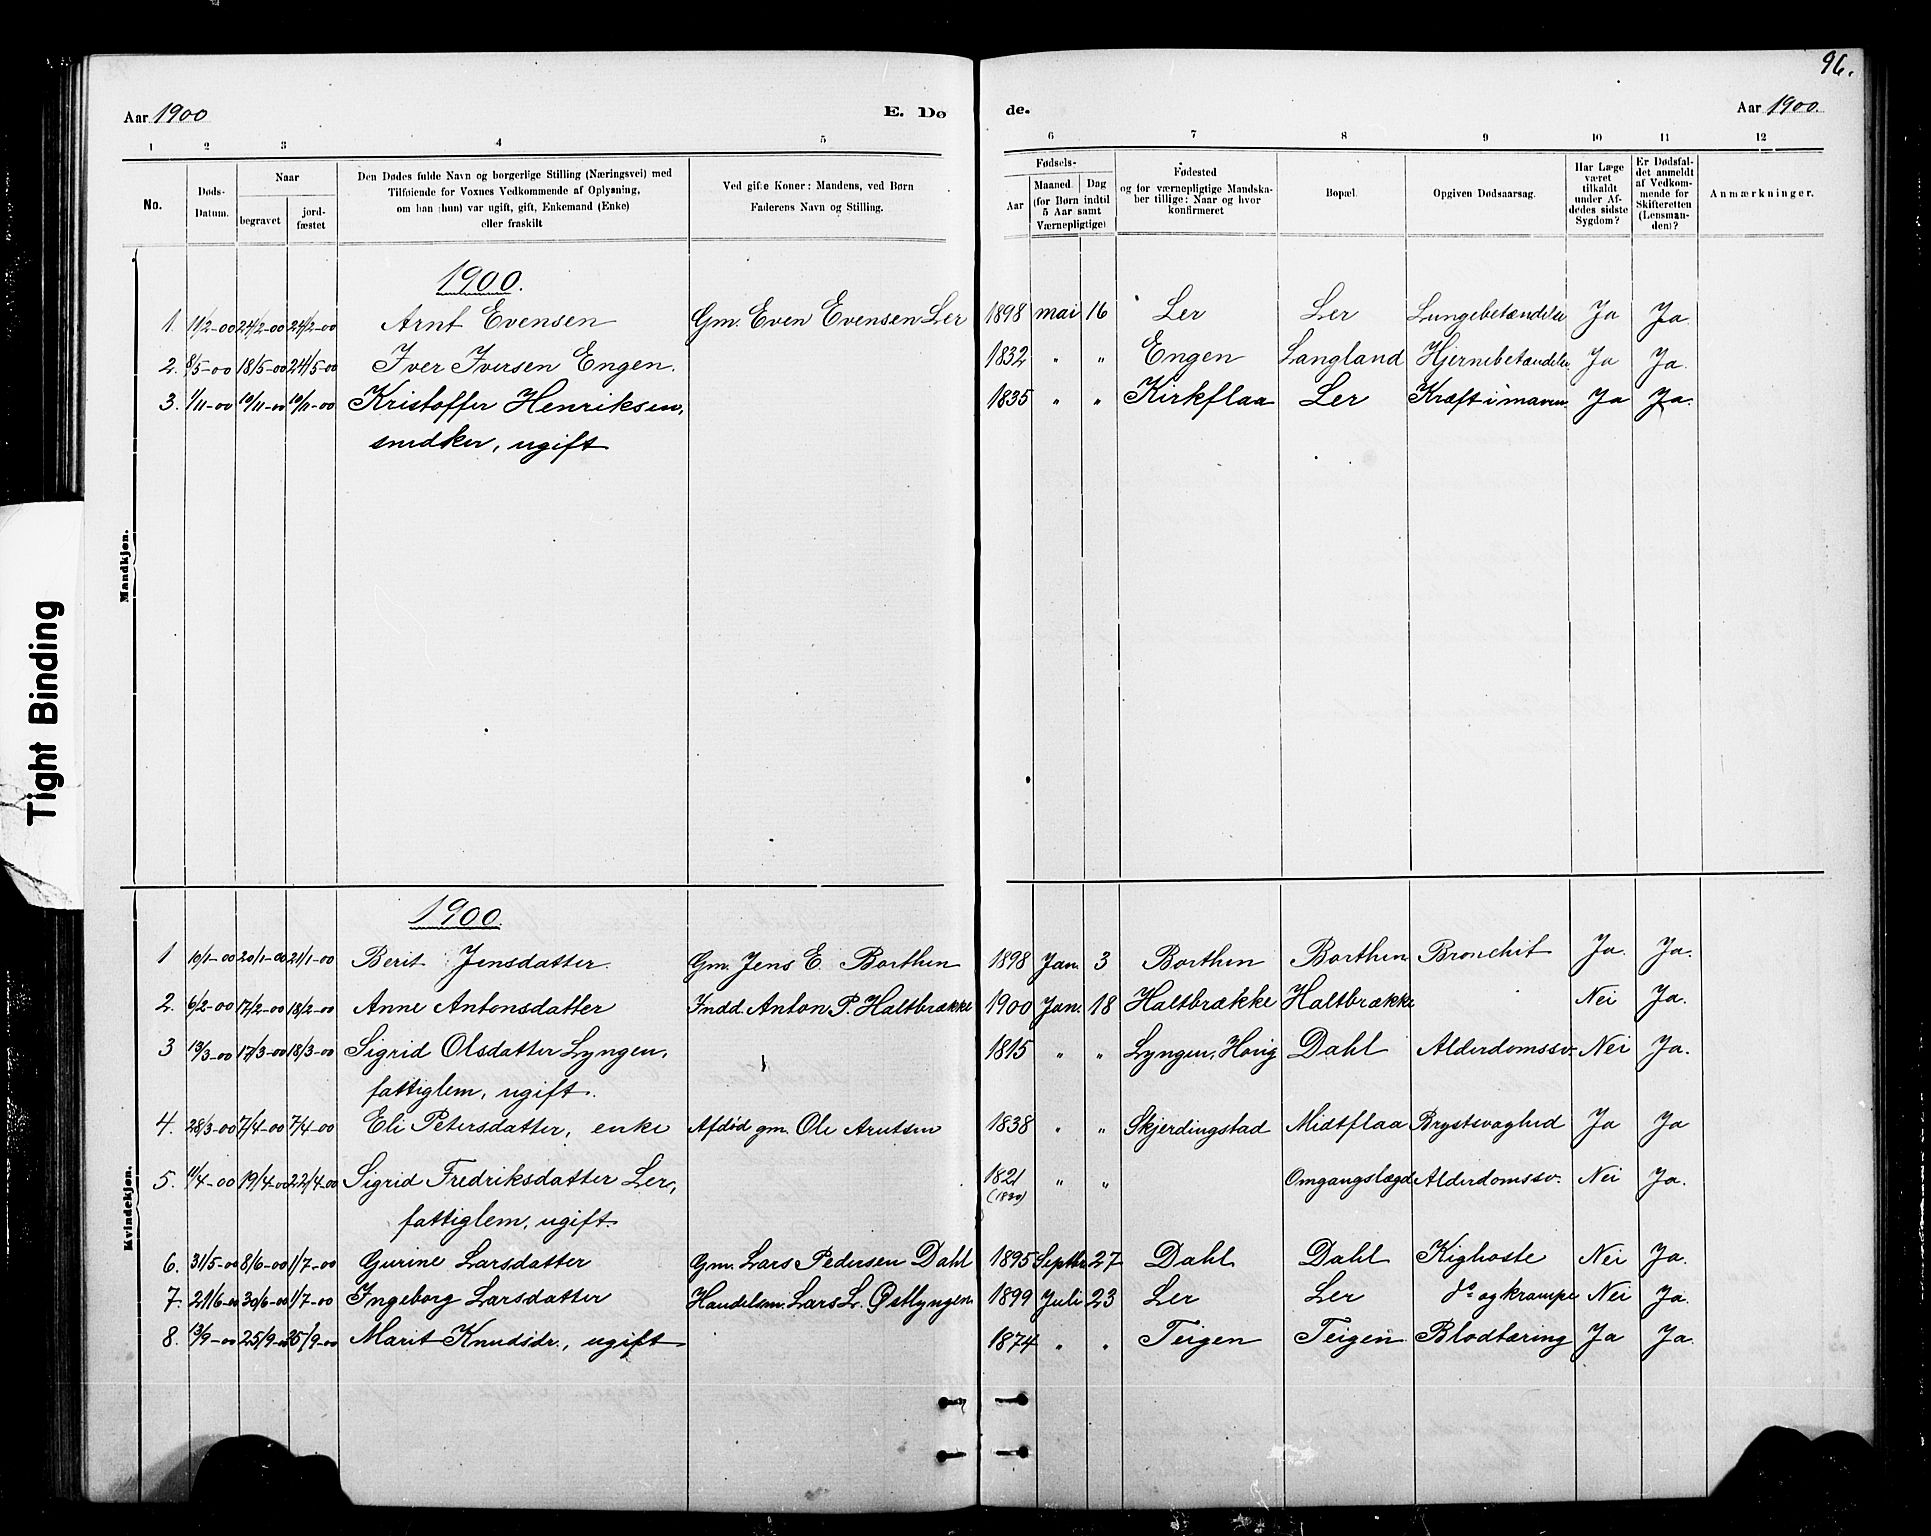 96.
Aar 1900 E. Dø de. Aar 1900.
1 2 3 4 5 6 7 8 9 10 11 12
No.
Døds-
Datum.
Naar
begravet
jord-
fæstet
Den Dødes fulde Navn og borgerlige Stilling (Næringsvei) med
Tilføiende for Voxnes Vedkommende af Oplysning,
om han (hun) var ugift, gift, Enkemand (Enke)
eller fraskilt
Ved gifte Koner: Mandens, ved Børn
Faderens Navn og Stilling.
Fødsels-
Aar
Maaned. Dag
(for Børn indtil
5 Aar samt
Værnepligtige)
Fødested
og for værnepligtige Mandska-
ber tillige: Naar og hvor
konfirmeret
Bopæl.
Opgiven Dødsaarsag.
Har Læge
været
tilkaldt
under Af-
dødes sidste
Sygdom?
Er Dødsfal-
det anmeldt
af Vedkom-
mende for
Skifteretten
(Lensman-
den)?
Anmærkninger.
Mandkjøn.
1900.
1. 11/2-00 24/2-00 24/2-00 Arnt Evensen Gm. Even Evensen Ler 1898 mai 16 Ler Ler Lungebetændelse Ja Ja.
2. 8/5-00 18/5-00 24/5-00 Iver Iversen Engen. 1832 " " Engen Langland Hjernebetændelse Ja Ja.
3. 1/11-00 10/11-00 10/11-00 Kristoffer Henriksen, 1835 " " Kirkflaa Ler Kræft i maven. Ja Ja.
snedker, ugift
Tight Binding
Kvindekjøn.
1900.
1 10/1-00 20/1-00 21/1-00 Berit Jensdatter. Gm. Jens E. Borthen 1898 Jan. 3 Borthen Borthen Bronchit Ja. Ja.
2. 6/2-00 17/2-00 18/2-00 Anne Antonsdatter Indd. Anton P. Haltbrække 1900 Jan. 18 Haltbrække Haltbrække Nei Ja.
3 13/3-00 17/3-00 18/3-00 Sigrid Olsdatter Lyngen, 1815 " " Lyngen, Horig Dahl Alderdomssv. Nei Ja.
fattiglem, ugift.
4. 28/3-00 7/4-00 7/4-00 Eli Petersdatter, enke Afdød gm. Ole Arntsen 1838 " " Skjerdingstad Midtflaa Brystsvaghed Ja Ja
5. 11/4-00 19/4-00 22/4-00 Sigrid Fredriksdatter Ler, 1821 " " Omgangslægd Alderdomssv. Nei Ja.
fattiglem, ugift.
6. 31/5-00 8/6-00 1/7-00 Gurine Larsdatter Gm. Lars Pedersen Dahl 1895 Septbr 27 Dahl Dahl Kighoste Nei Ja.
7. 21/6-00 30/6-00 1/7-00 Ingeborg Larsdatter Handelsm. Lars L. Østlyngen 1899 Juli 23 Ler Ler do og krampe Nei Ja.
8. 13/9-00 25/9-00 25/9-00 Marit Knudsdr., ugift 1874 " " Teigen Teigen Blodtæring Ja Ja.